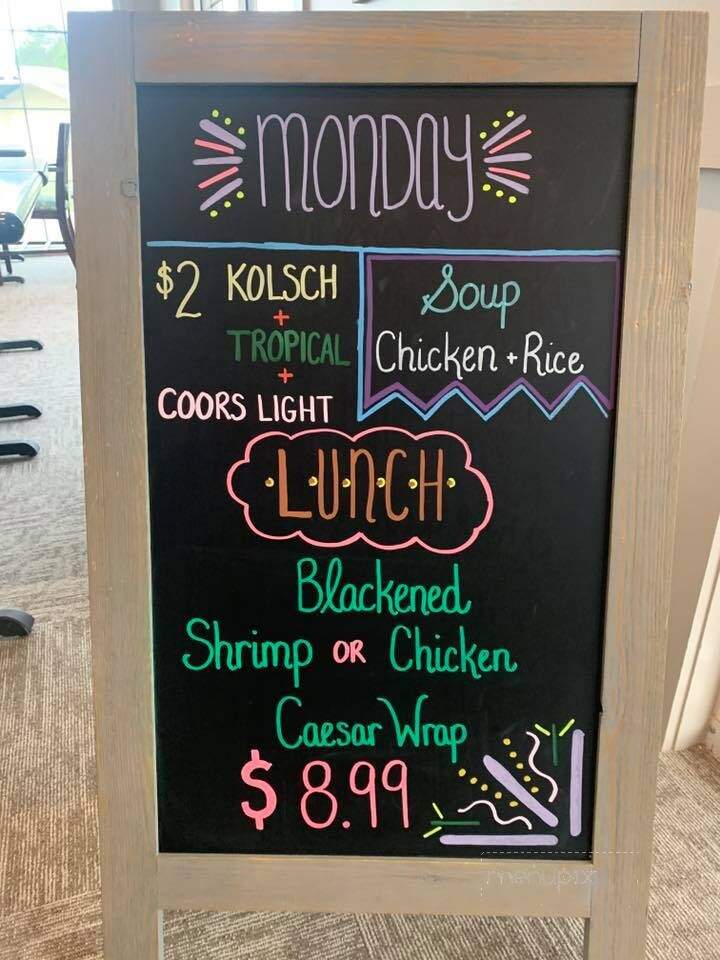 MONDAY
$2 KOLSCH
+
TROPICAL
+
COORS LIGHT
Soup
Chicken + Rice
LUNCH
Blackened
Shrimp OR Chicken
Caesar Wrap
$8.99
menupix